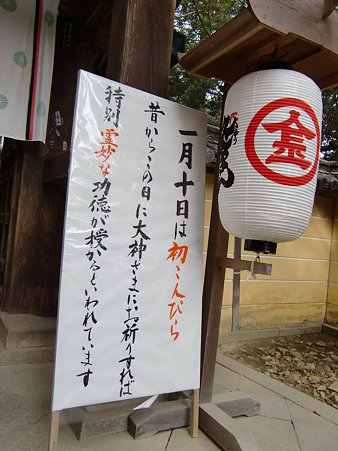 一月十日は初こんぴら
昔からこの日に大神さまにお祈りすれば
特別霊妙な功徳が授かるといわれています
金